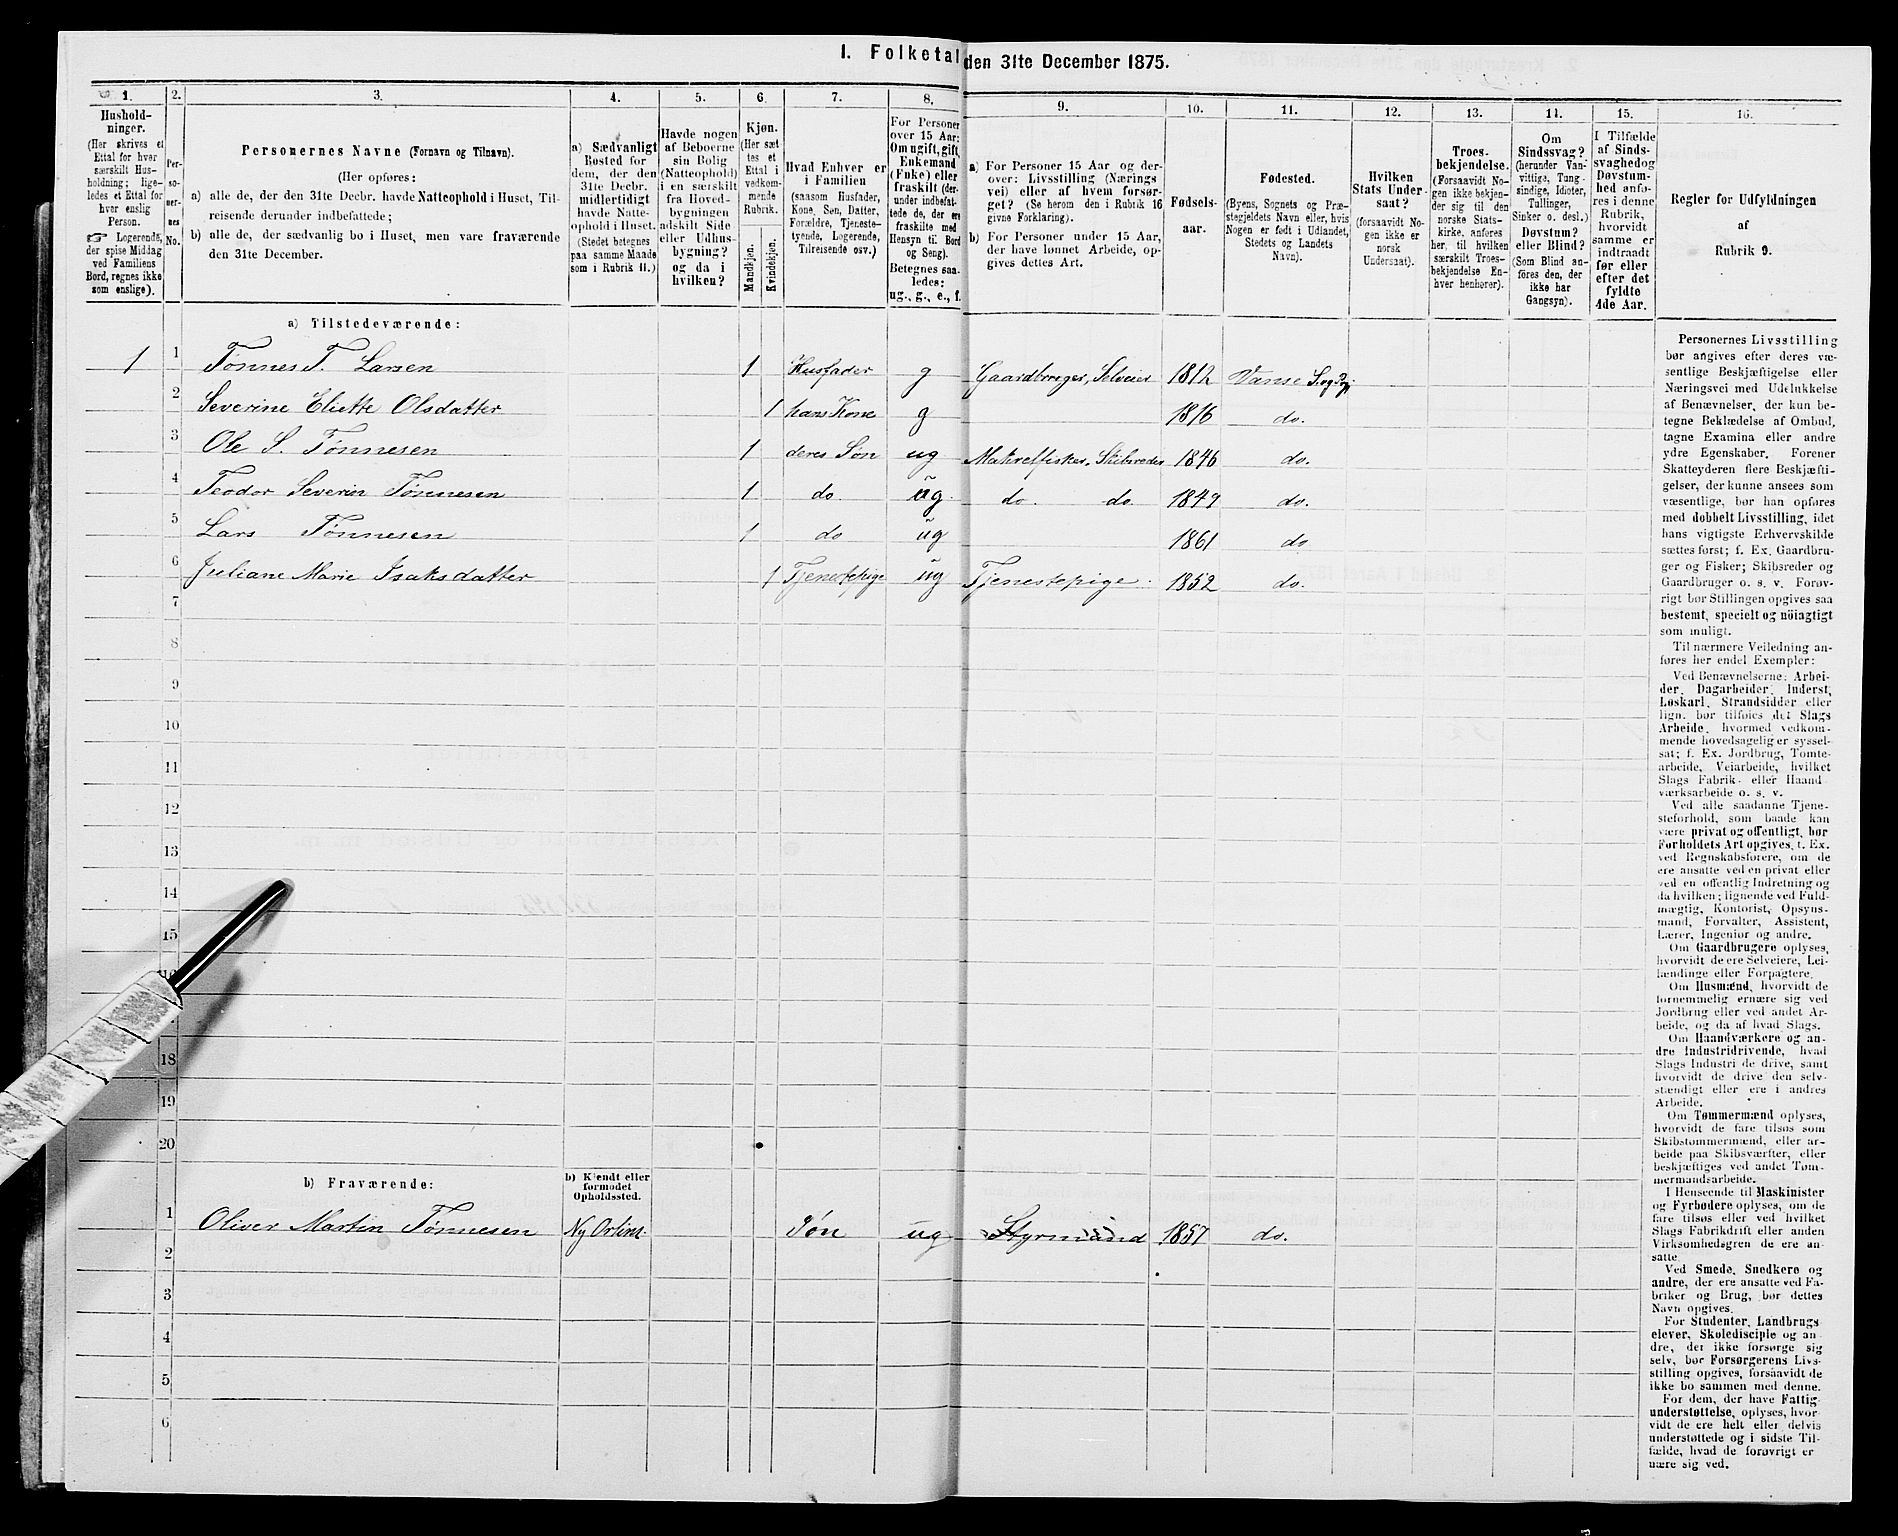 I. Folketal den 31te December 1875.
1. 2. 3. 4. 5. 6. 7. 8. 9. 10. 11. 12. 13. 14. 15. 16.
Hushold-
ninger.
(Her skrives et
Ettal for hver
særskilt Hus-
holdning; lige-
ledes et Ettal for
hver enslig
Person.
☞ Logerende,
der spise Middag
ved Familiens
Bord, regnes ikke
som enslige).
Per-
so-
ner-
nes
No.
Personernes Navne (Fornavn og Tilnavn).
(Her opføres:
a) alle de, der den 31te Decbr. havde Natteophold i Huset, Til-
reisende derunder indbefattede;
b) alle de, der sædvanlig bo i Huset, men vare fraværende
den 31te December.
a) Sædvanligt
Bosted for
dem, der den
31te Decbr.
midlertidigt
havde Natte-
ophold i Huset.
(Stedet betegnes
paa samme Maade
som i Rubrik 11.)
Havde nogen
af Beboerne
sin Bolig
(Natteophold)
i en særskilt
fra Hoved-
bygningen
adskilt Side
eller Udhus-
bygning?
og da i
hvilken?
Kjøn.
(Her sæt
tes et
Ettal i
vedkom-
mende
Rubrik.
Mandkjøn.
Kvindekjøn.
Hvad Enhver er
i Familien
(saasom Husfader,
Kone, Søn, Datter,
Forældre, Tjeneste-
tyende, Logerende,
Tilreisende osv.)
For Personer
over 15 Aar:
Om ugift, gift,
Enkemand
(Enke) eller
fraskilt (der-
under indbefat-
tede de, der ere
fraskilte med
Hensyn til Bord
og Seng).
Betegnes saa-
ledes:
ug., g., e., f.
a) For Personer 15 Aar og der-
over: Livsstilling (Nærings
vei) eller af hvem forsør-
get? (Se herom den i Rubrik 16
givne Forklaring).
b) For Personer under 15 Aar,
der have lønnet Arbeide, op-
gives dettes Art.
Fødsels-
aar.
Fødested.
(Byens, Sognets og Præ-
stegjeldets Navn eller, hvis
Nogen er født i Udlandet,
Stedets og Landets
Navn).
Hvilken
Stats Under-
saat?
(forsaavidt No-
gen ikke er
norsk
Undersaat).
Troes-
bekjendelse.
(Forsaavidt No-
gen ikke bekjen-
der sig til den
norske Stats-
kirke, anføres
her, til hvilken
særskilt Troes-
bekjendelse En-
hver henhører).
Om
Sindssvag?
(herunder Van-
vittige, Tung-
sindige, Idioter,
Tullinger,
Sinker o. desl.)
Døvstum?
eller Blind?
(Som Blind an-
føres den, der
ikke har
Gangsyn).
I Tilfælde
af Sinds-
svaghed og
Døvstum-
hed anfø-
res i denne
Rubrik,
hvorvidt
samme er
indtraadt
før eller
efter det
fyldte
4de Aar.
Regler for Udfyldningen
af
Rubrik 9.
a) Tilstedeværende:
1 1 Tønnes T. Larsen 1 Husfader g Gaardbruger, Selveier 1812 Vanse S. og Pgj.
2 Severine Eliette Olsdatter 1 hans Kone g 1816 do.
3 Ole S. Tønnesen 1 deres Søn ug Makrelfisker, Skibsreder 1846 do.
4 Teodor Severin Tønnesen 1 do. ug. do. do. 1849 do.
5 Lars Tønnesen 1 do ug 1861 do
6 Juliane Marie Isaksdatter 1 Tjenestepige ug Tjenestepige. 1852 do.
7
8
9
10
11
12
13
14
15
18
19
20
b) Fraværende:
b) Kjendt eller
formodet
Opholdssted.
1 Oliver Martin Tønnesen Ny Orlins. Søn ug Styrmand 1857 do.
2
3
4
5
6
Personernes Livsstilling
bør angives efter deres væ-
sentlige Beskjæftigelse eller
Næringsvei med Udelukkelse
af Benævnelser, der kun be-
tegne Beklædelse af Ombud,
tagne Examina eller andre
ydre Egenskaber. Forener
Skatteyderen flere Beskjæfti-
gelser, der kunne ansees som
væsentlige, bør han opføres
med dobbelt Livsstilling, idet
hans vigtigste Erhvervskilde
sættes først; f. Ex. Gaardbru-
ger og Fisker; Skibsreder og
Gaardbruger o. s. v. Forøv-
rigt bør Stillingen opgives saa
bestemt, specielt og nöiagtigt
som muligt.
Til nærmere Veiledning an-
føres her endel Exempler:
Ved Benævnelserne: Arbei-
der, Dagarbeider, Inderst,
Løskarl, Strandsidder eller
lign. bør tilføies det Slags
Arbeide, hvormed vedkom-
mende hovedsagelig er syssel-
sat; f. Ex. Jordbrug, Tomte-
arbeide, Veiarbeide, hvilket
Slags Fabrik- eller Haand
værksarbeide o. s. v.
Ved alle saadanne Tjene-
steforhold, som baade kan
være privat og offentligt, bør
Forholdets Art opgives, f. Ex.
ved Regnskabsførere, om de
ere ansatte ved en privat eller
ved en offentlig Indretning og
da hvilken; lignende ved Fuld-
mægtig, Kontorist, Opsyns-
mand, Forvalter, Assistent,
Lærer, Ingeniør og andre.
Om Gaardbrugere oplyses,
hvorvidt de ere Selveiere, Lei-
lændinge eller Forpagtere.
Om Husmænd, hvorvidt de
fornemmelig ernære sig ved
Jordbrug eller ved andet Ar-
beide, og da af hvad Slags.
Om Haandværkere og an-
dre Industridrivende, hvad
Slags Industri de drive, samt
hvorvidt de drive den selv-
stændigt eller ere i andres
Arbeide.
Om Tømmermænd oplyses,
hvorvidt de fare tilsøs som
Skibstømmermænd, eller ar-
beide paa Skibsværfter, eller
beskjæftiges ved andet Tøm-
mermandsarbeide.
I Henseende til Maskinister
og Fyrbødere oplyses, om de
fare tilsøs eller ved hvilket
Slags Fabrikdrift eller anden
Virksomhedsgren de ere an-
satte.
Ved Smede, Snedkere og
andre, der ere ansatte ved Fa-
briker og Brug, bør dettes
Navn opgives.
For Studenter, Landbrugs
elever, Skoledisciple og an
dre, der ikke forsørge sig
selv, bør Forsørgerens Livs-
stilling opgives, forsaavidt de
ikke bo sammen med denne.
For dem, der have Fattig
understøttelse, oplyses, hvor
vidt de ere helt eller delvis
understøttede og i sidste Til-
fælde, hvad de forøvrigt er
nære sig ved.